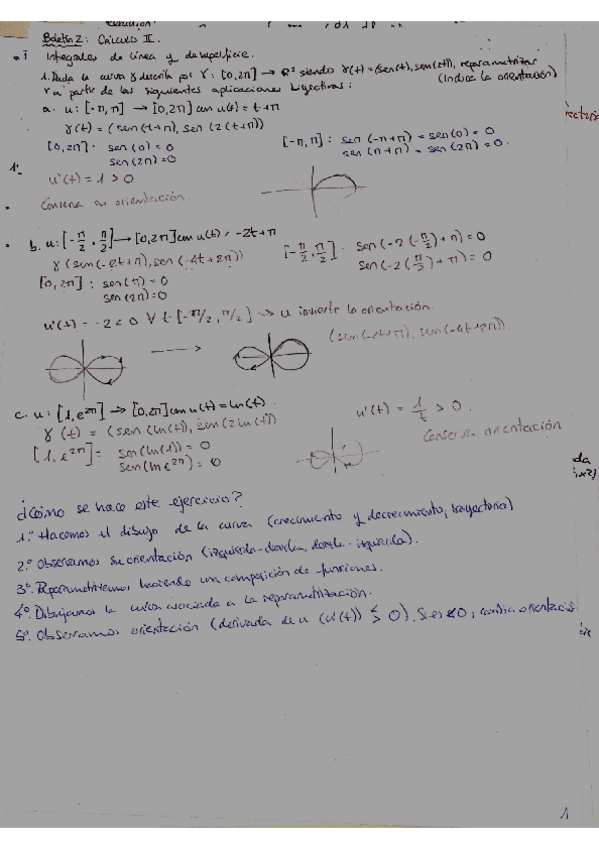 Boletín 2: CÁLCULO II.
Integrales de línea y de superficie.
1. Dada la curva γ descrita por γ: [0,2π] → R² siendo γ(t) = (sen(t), sen(2t)), reparametrizar
γ a partir de las siguientes aplicaciones biyectivas: (Indica la orientación)
a. u: [-π,π] → [0,2π] con u(t) = t+π
γ(t) = (sen(t+π), sen(2(t+π))
[0,2π]: sen(0) = 0
sen(2π) = 0
[-π,π]: sen(-π+π) = sen(0) = 0
sen(π+π) = sen(2π) = 0.
1.
u'(t) = 1 > 0
Conserva su orientación.
b. u: [-π/2, π/2] → [0,2π] con u(t) = -2t+π
γ(sen(-2t+π), sen(-4t+2π))
[-π/2, π/2]: sen(-2(-π/2)+π) = 0
sen(-2(π/2)+π) = 0
[0,2π]: sen(π) = 0
sen(2π) = 0
u'(t) = -2 < 0 ∀ t-[-π/2, π/2] → u invierte la orientación.
(sen(-2t+π), sen(-4t+2π))
c. u: [1,e^2π] → [0,2π] con u(t) = ln(t).
γ(t) = (sen(ln(t)), sen(2ln(t))
[1,e^2π] = sen(ln(1)) = 0
sen(ln e^2π) = 0
u'(t) = 1/t > 0.
Conserva orientación
da
¿Cómo se hace este ejercicio?
1º. Hacemos el dibujo de la curva (crecimiento y decrecimiento, trayectoria)
2º. Observamos su orientación (izquierda-derecha, derecha-izquierda).
3º. Reparametrizamos haciendo una composición de funciones.
4º. Dibujamos la curva asociada a la reparametrización.
5º. Observamos orientación (derivada de u (u'(t)) ≶ 0). Si es < 0, cambia orientación
1